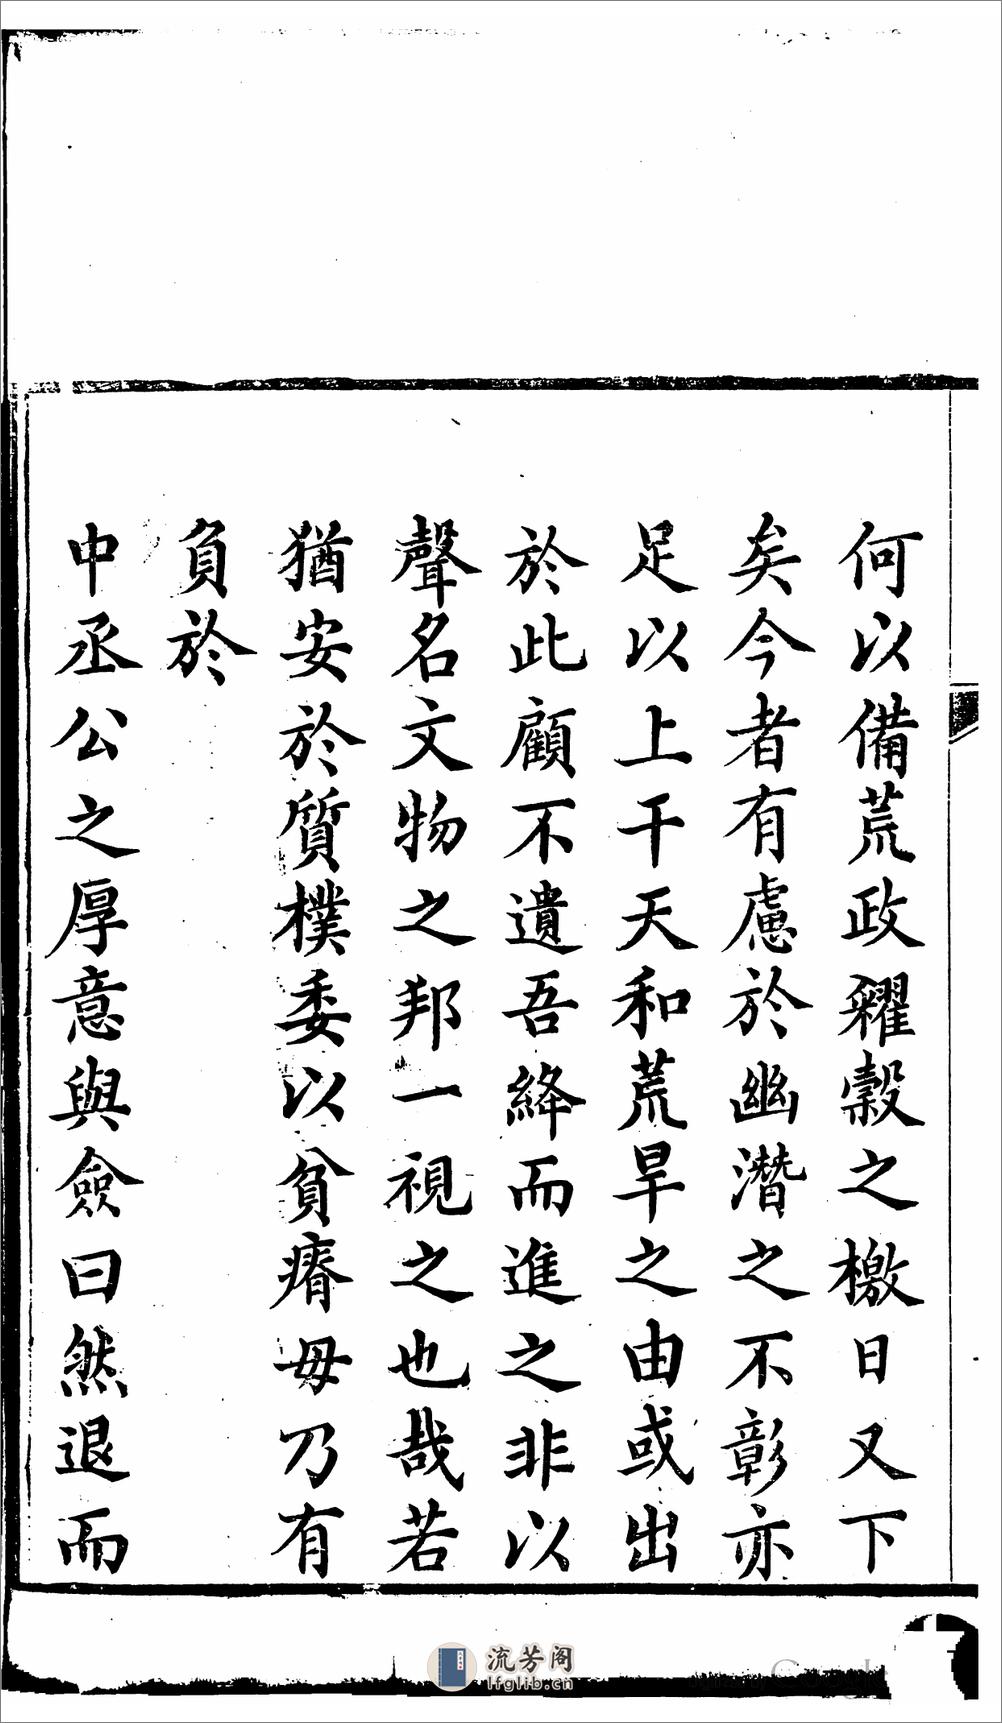 何以備荒政糴穀之檄日又下
矣今者有慮於幽潛之不彰亦
足以上干天和荒旱之由或出
於此顧不遺吾絳而進之非以
聲名文物之邦一視之也哉若
猶安於質樸委以貧瘠毋乃有
負於
中丞公之厚意與僉曰然退而
流芳阁
lfglib.cn